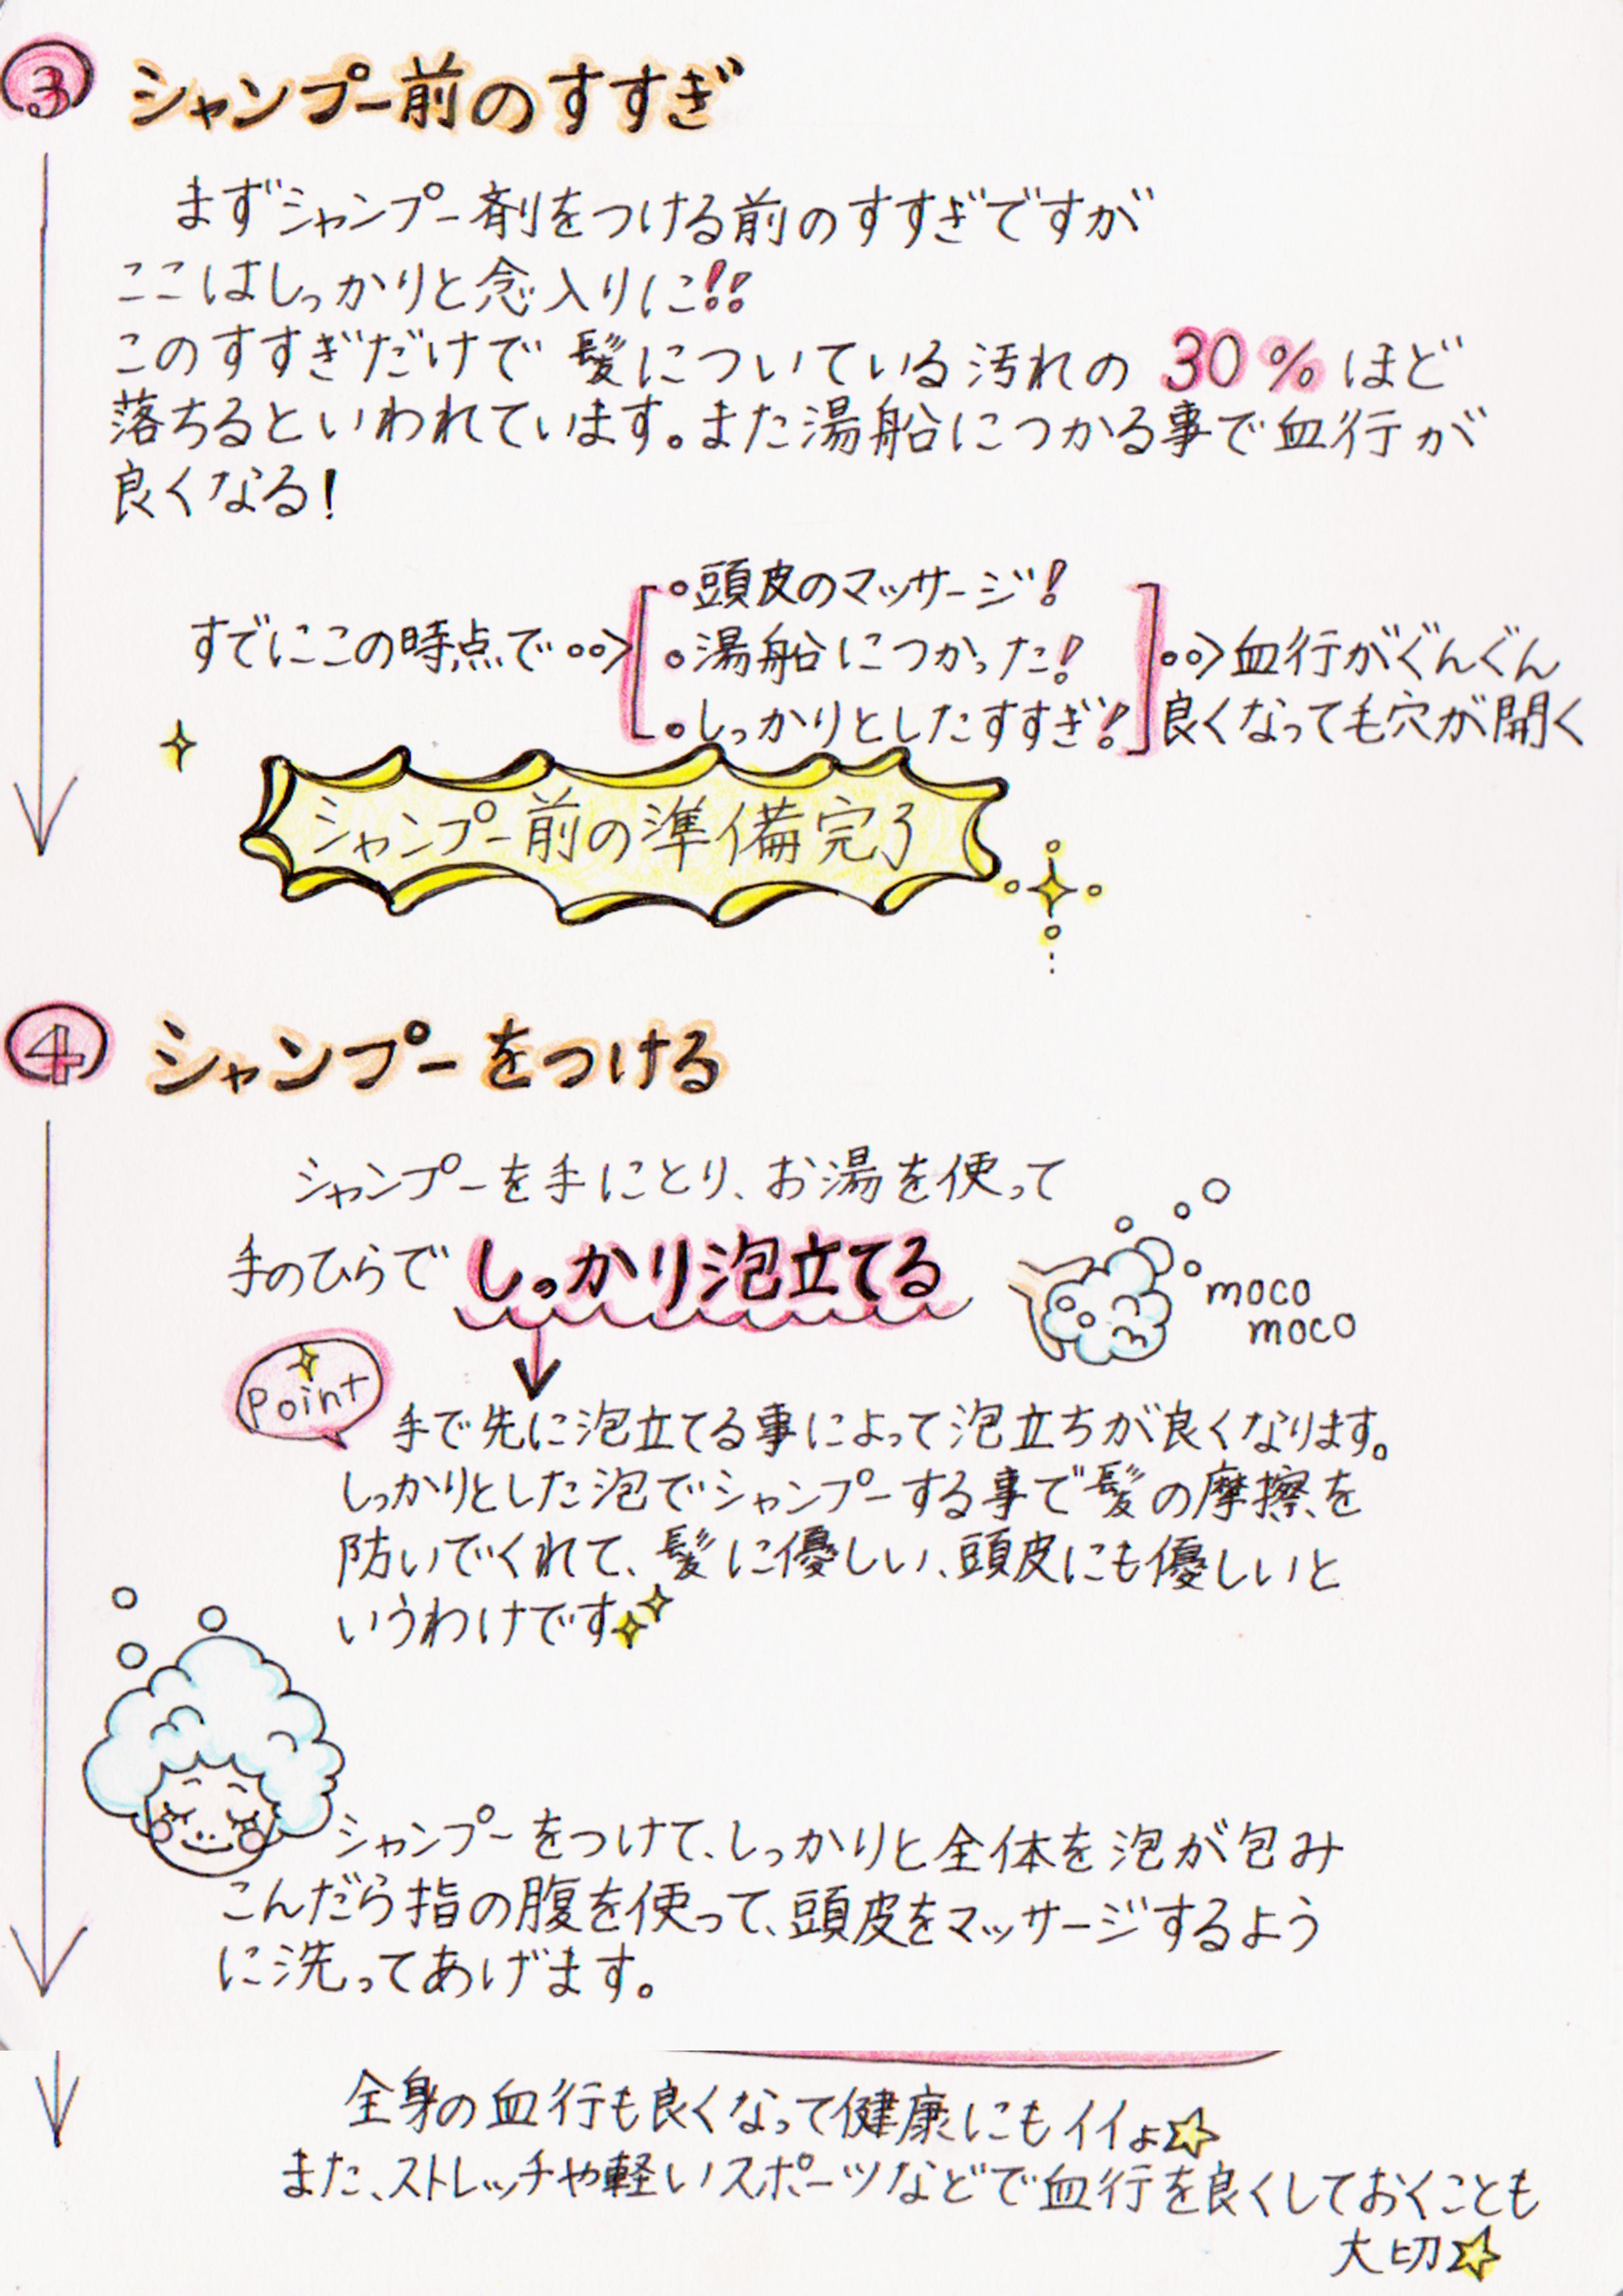 ③ シャンプー前のすすぎ
まずシャンプー剤をつける前のすすぎですが
ここはしっかりと念入りに!!
このすすぎだけで髪についている汚れの30%ほど
落ちるといわれています。また湯船につかる事で血行が
良くなる!
・頭皮のマッサージ!
すでにこの時点で・・>[・湯船につかった!]・・>血行がぐんぐん
・しっかりとしたすすぎ! 良くなって毛穴が開く
シャンプー前の準備完了
④ シャンプーをつける
シャンプーを手にとり、お湯を使って
手のひらでしっかり泡立てる
moco
moco
Point
手で先に泡立てる事によって泡立ちが良くなります。
しっかりとした泡でシャンプーする事で髪の摩擦を
防いでくれて、髪に優しい、頭皮にも優しいと
いうわけです
シャンプーをつけて、しっかりと全体を泡が包み
こんだら指の腹を使って、頭皮をマッサージするよう
に洗ってあげます。
全身の血行も良くなって健康にもイイょ☆
また、ストレッチや軽いスポーツなどで血行を良くしておくことも
大切☆